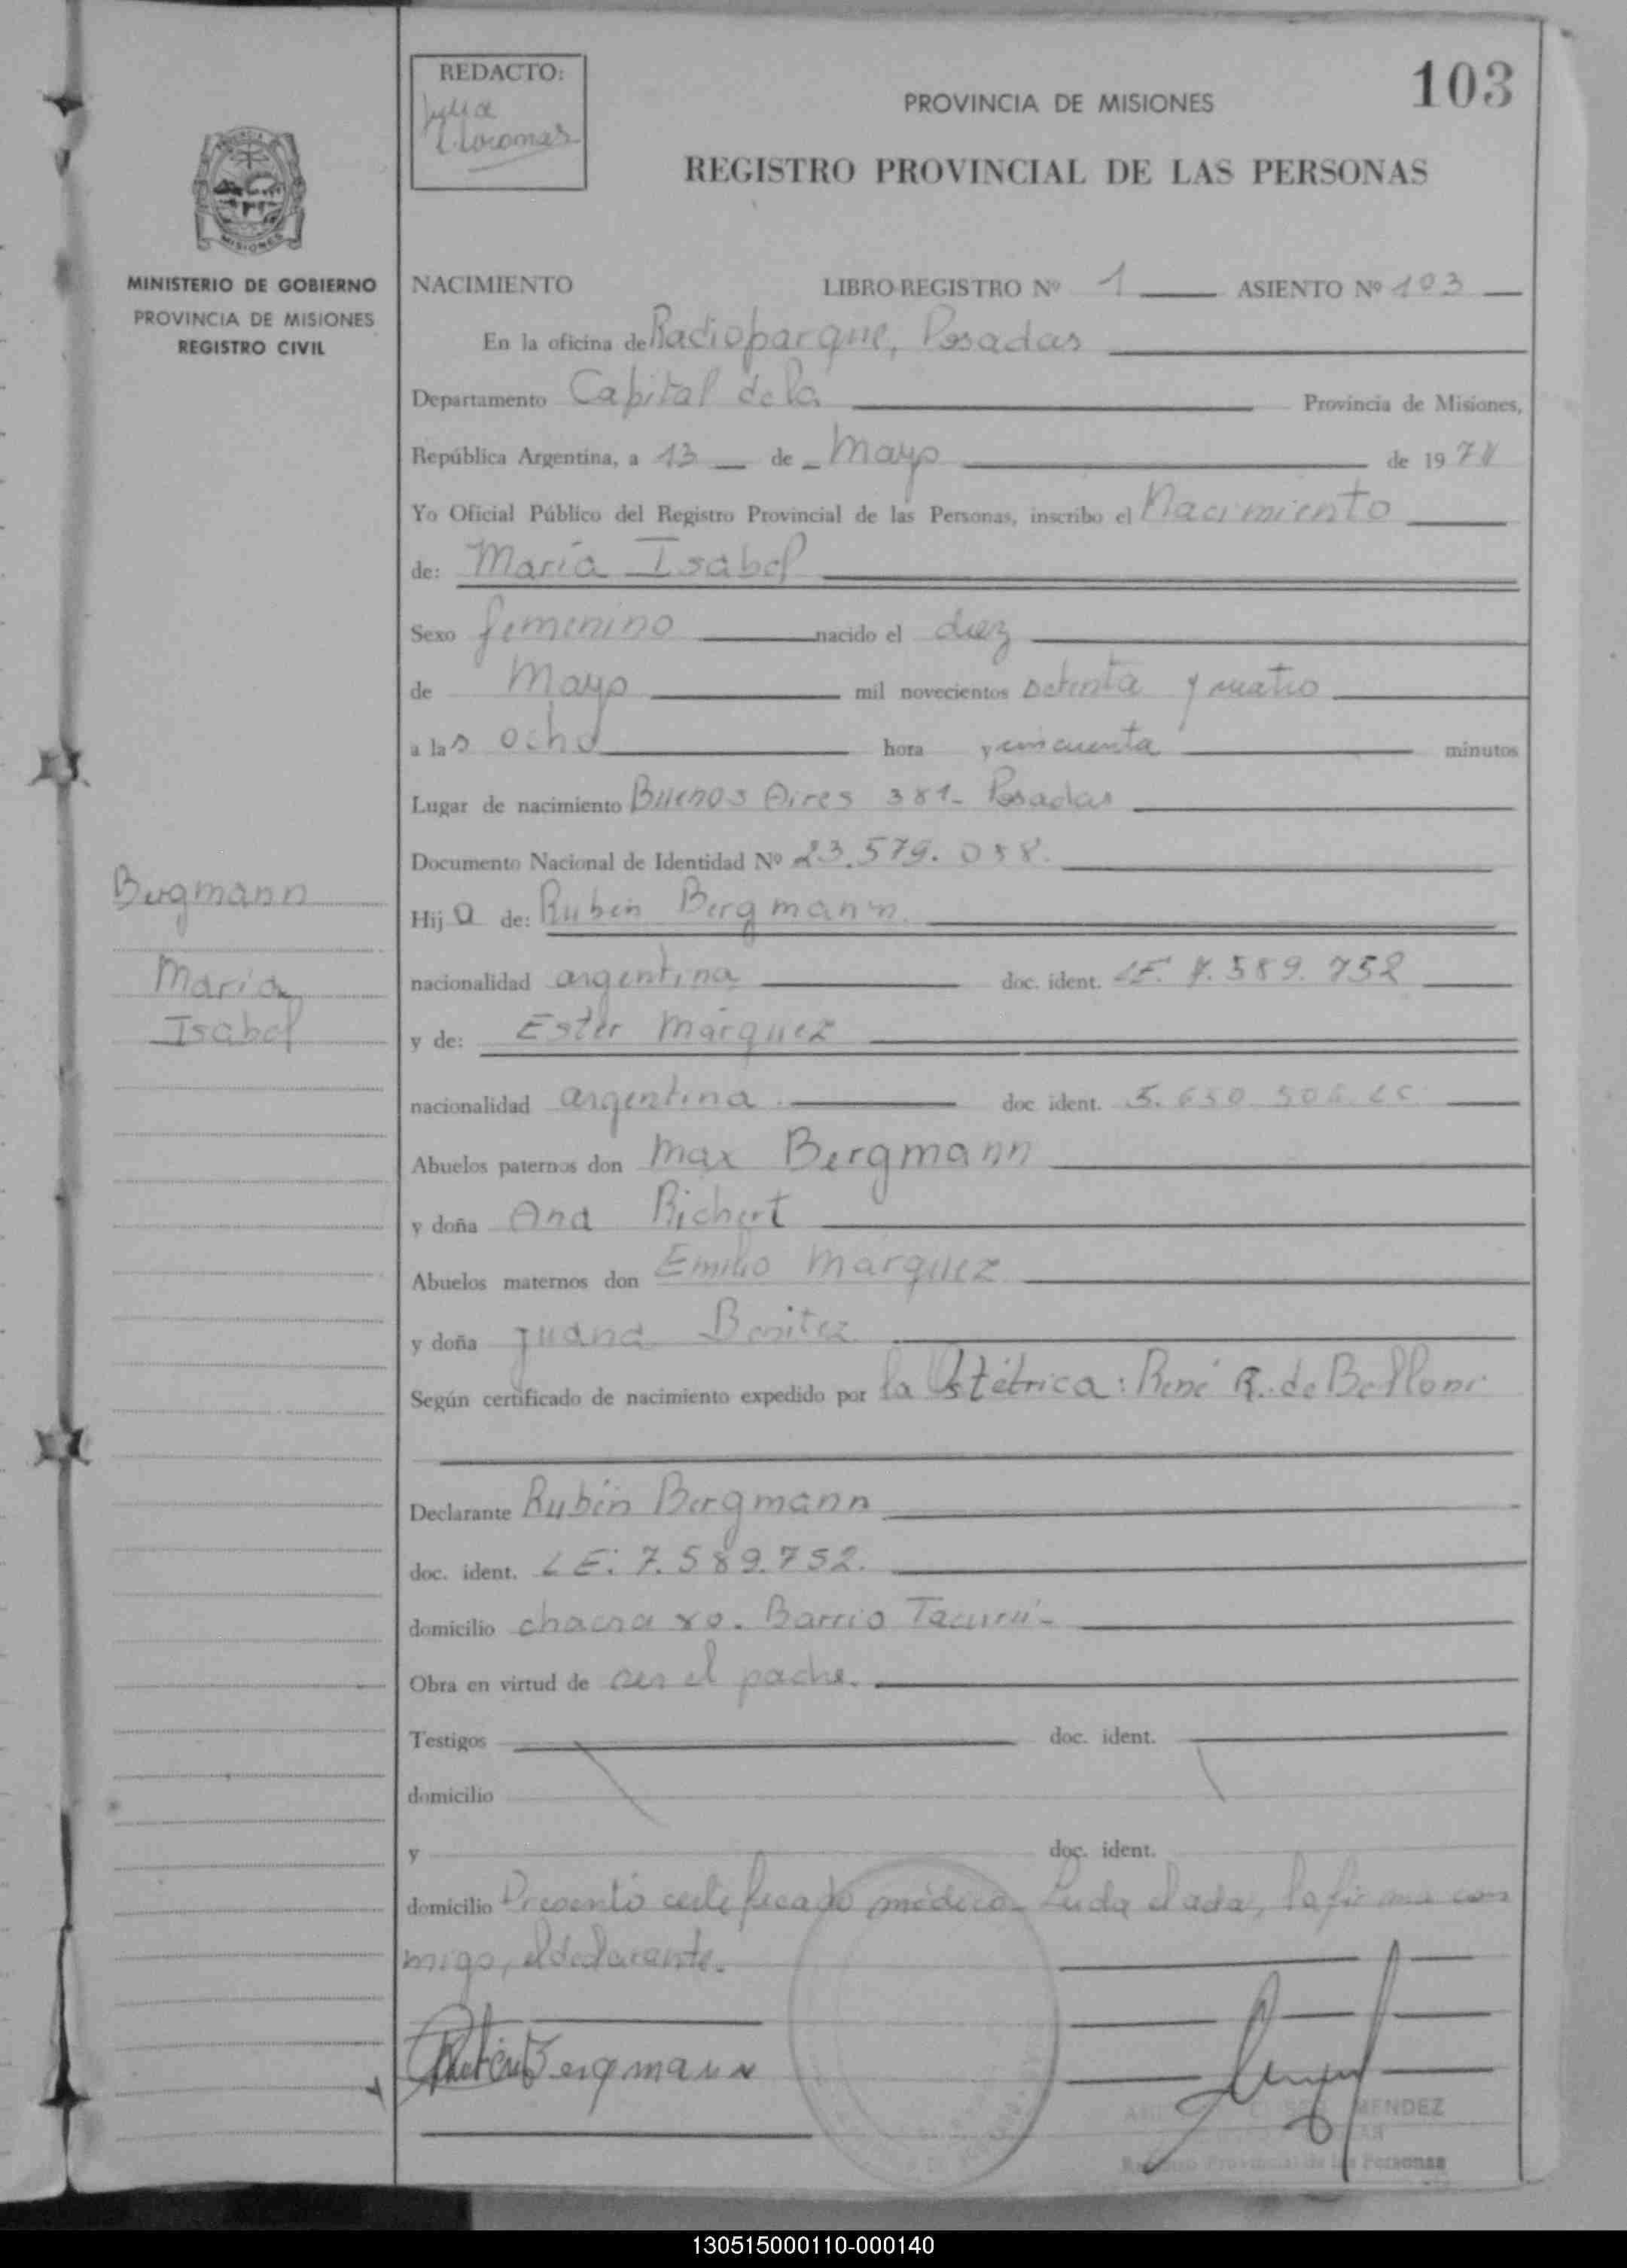 103
REDACTO:
PROVINCIA DE MISIONES
REGISTRO PROVINCIAL DE LAS PERSONAS
MINISTERIO DE GOBIERNO
PROVINCIA DE MISIONES
REGISTRO CIVIL
NACIMIENTO LIBRO-REGISTRO Nº 1 ASIENTO Nº 103
En la oficina de Radioparque, Posadas
Departamento Capital de la Provincia de Misiones,
República Argentina, a 13 de Mayo de 1974
Yo Oficial Público del Registro Provincial de las Personas, inscribo el Nacimiento
de: María Isabel
Sexo femenino nacido el diez
de Mayo mil novecientos setenta y cuatro
a las ocho hora y cincuenta minutos
Lugar de nacimiento Buenos Aires 381- Posadas
Documento Nacional de Identidad Nº 23.579.088.
Bergmann
María
Isabel
Hija de: Rubén Bergmann.
nacionalidad argentina doc. ident. LE. 7.589.752
y de: Ester Márquez
nacionalidad argentina doc ident. 5.650 506 LC
Abuelos paternos don Max Bergmann
y doña Ana Richert
Abuelos maternos don Emilio Márquez
y doña Juana Benitez
Según certificado de nacimiento expedido por la Obstétrica: René R. de Belloni
Declarante Rubén Bergmann
doc. ident. LE: 7.589.752.
domicilio chacra 80. Barrio Tacurú-
Obra en virtud de ser el padre.
Testigos doc. ident.
domicilio
y doc. ident.
domicilio Presentó certificado médico- Leida el acta, la firma con
migo, el declarante.
Rubén Bergmann
MENDEZ
Registro Provincial de las Personas
130515000110-000140